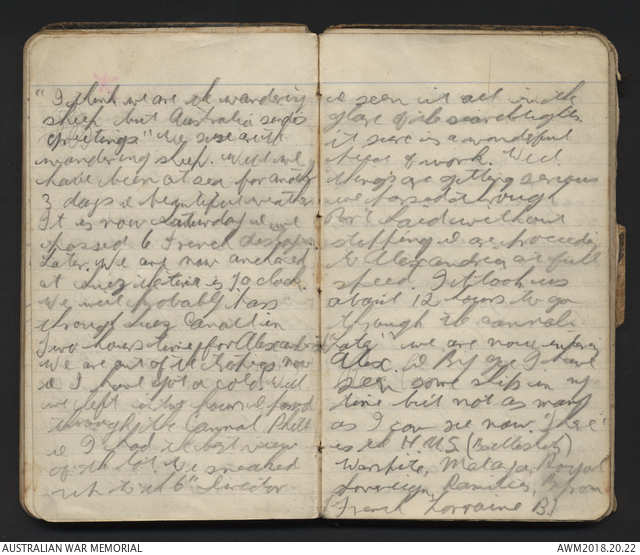 "I think we are the wandering
sheep but Australia sends
greetings" We sure are the
wandering sheep. Well we
have been at sea for another
3 days & beautiful weather
It is now Saturday & we
passed 6 French
Later. We are now anchored
at Suez & time is 7 o clock
We will probably pass
through Suez Canal in
Two hours time for Alexandria
We are out of the now
& I have got a cold. Well
we left in the hours & passed
through the Cannal
& I had the best view
of the lot. We sneaked
6"
& seen it all in the
glare of the searchlights.
it sure is a wonderful
bit of work. Well
things are getting serious
we passed through
Port Said without
stopping & are proceeding
to Alexandria at full
speed. It took us
about 12 hours to go
through the cannal.
Later we are now in
Alex. & By I have
seen some ships in my
time but not as many
as I can see now.
is the H.M.S (Battleship)
Warspite, Malaya, Royal
Sovereign, Ramilies,
French Lorraine B.S
AUSTRALIAN WAR MEMORIAL
AWM2018.20.22